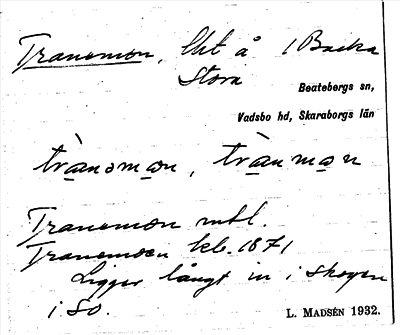 Tranemon, lht å 1 Backa
Stora
Beatebergs sn,
Vadsbo hd, Skaraborgs län
trànəmo̲n, trànmo̲n
Tranemon mtl.
Tranemoen kb. 1871
Ligger långt in i skogen
i So.
L. MADSÉN 1932.